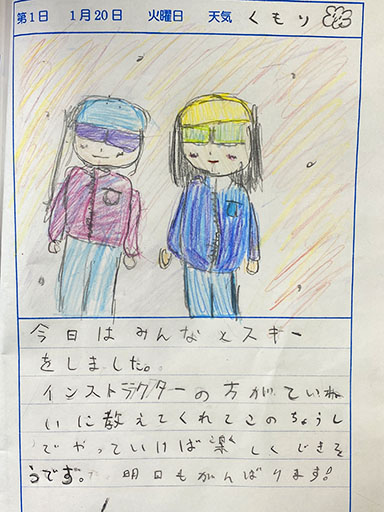 第1日 1月20日 火曜日 天気 くもり
今日はみんなとスキー
をしました。
インストラクターの方がていね
いに教えてくれてこのちょうし
でやっていけば楽しくできそ
うです。明日もがんばります!